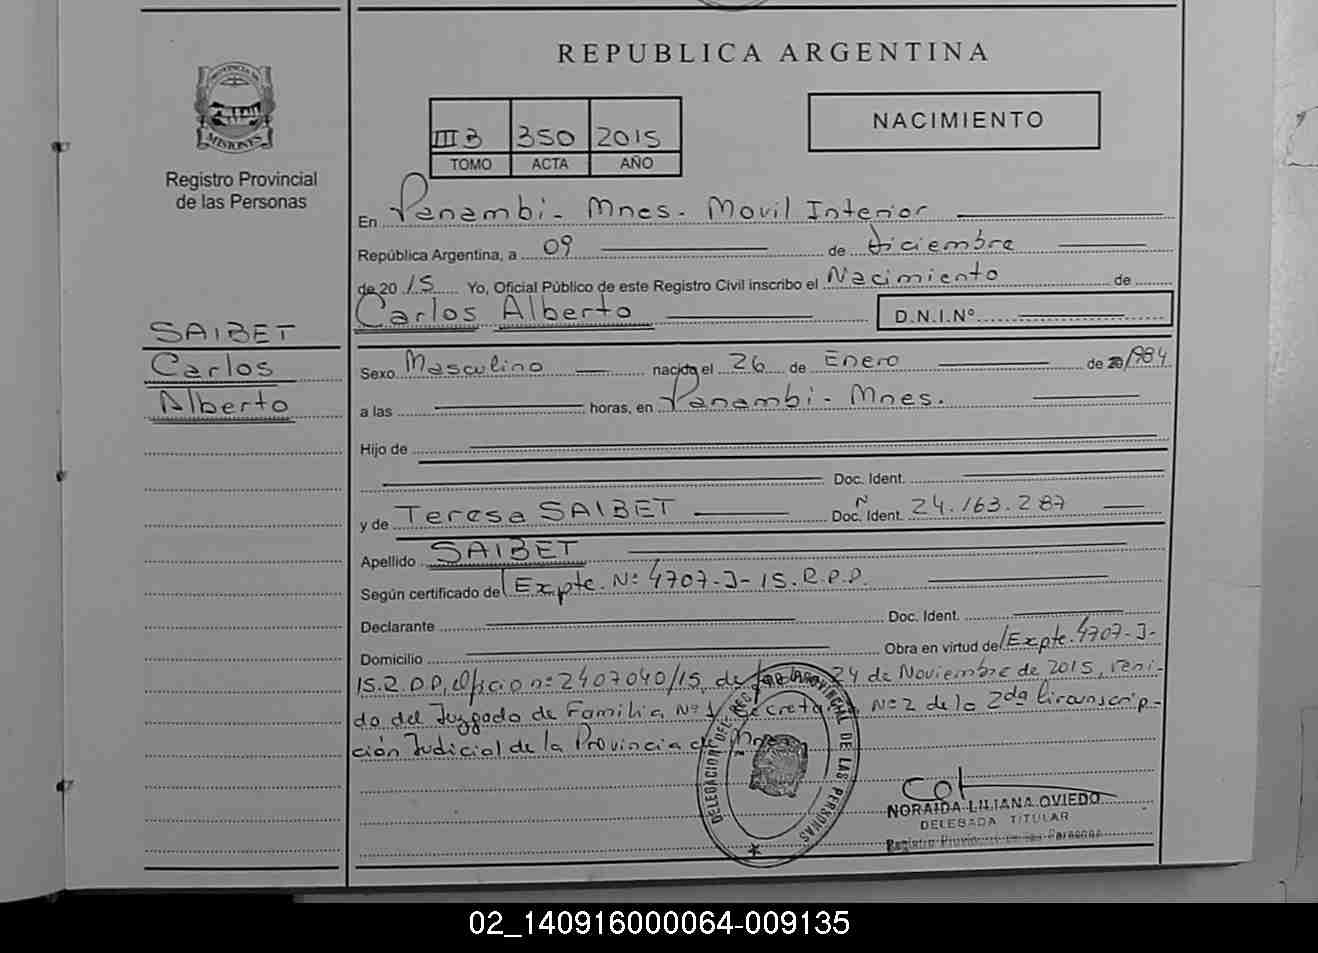 REPUBLICA ARGENTINA
PROVINCIA DE
MISIONES
Registro Provincial
de las Personas
III B 350 2015
TOMO ACTA AÑO
NACIMIENTO
En Panambi - Mnes. Movil Interior
República Argentina, a 09 de diciembre
de 2015 Yo, Oficial Público de este Registro Civil inscribo el Nacimiento de
Carlos Alberto D.N.I.Nº
SAIBET
Carlos
Alberto
Sexo Masculino nacido el 26 de Enero de 20 1984
a las horas, en Panambi - Mnes.
Hijo de
Doc. Ident.
y de Teresa SAIBET Doc. Ident. N 24.163.287
Apellido SAIBET
Según certificado del Expte. Nº 4707-J-15.R.P.P.
Declarante Doc. Ident.
Domicilio Obra en virtud del Expte. 4707-J-
15.R.P.P, Oficio nº 2407040/15, de fecha 24 de Noviembre de 2015, veni-
do del Juzgado de Familia Nº 1 Secretaria Nº 2 de la 2da Circunscrip-
ción Judicial de la Provincia de Mnes
DELEGACION DEL REG PROVINCIAL DE LAS PERSONAS
NORAIDA LILIANA OVIEDO
DELEGADA TITULAR
Registro Provincial de las Personas
02_140916000064-009135